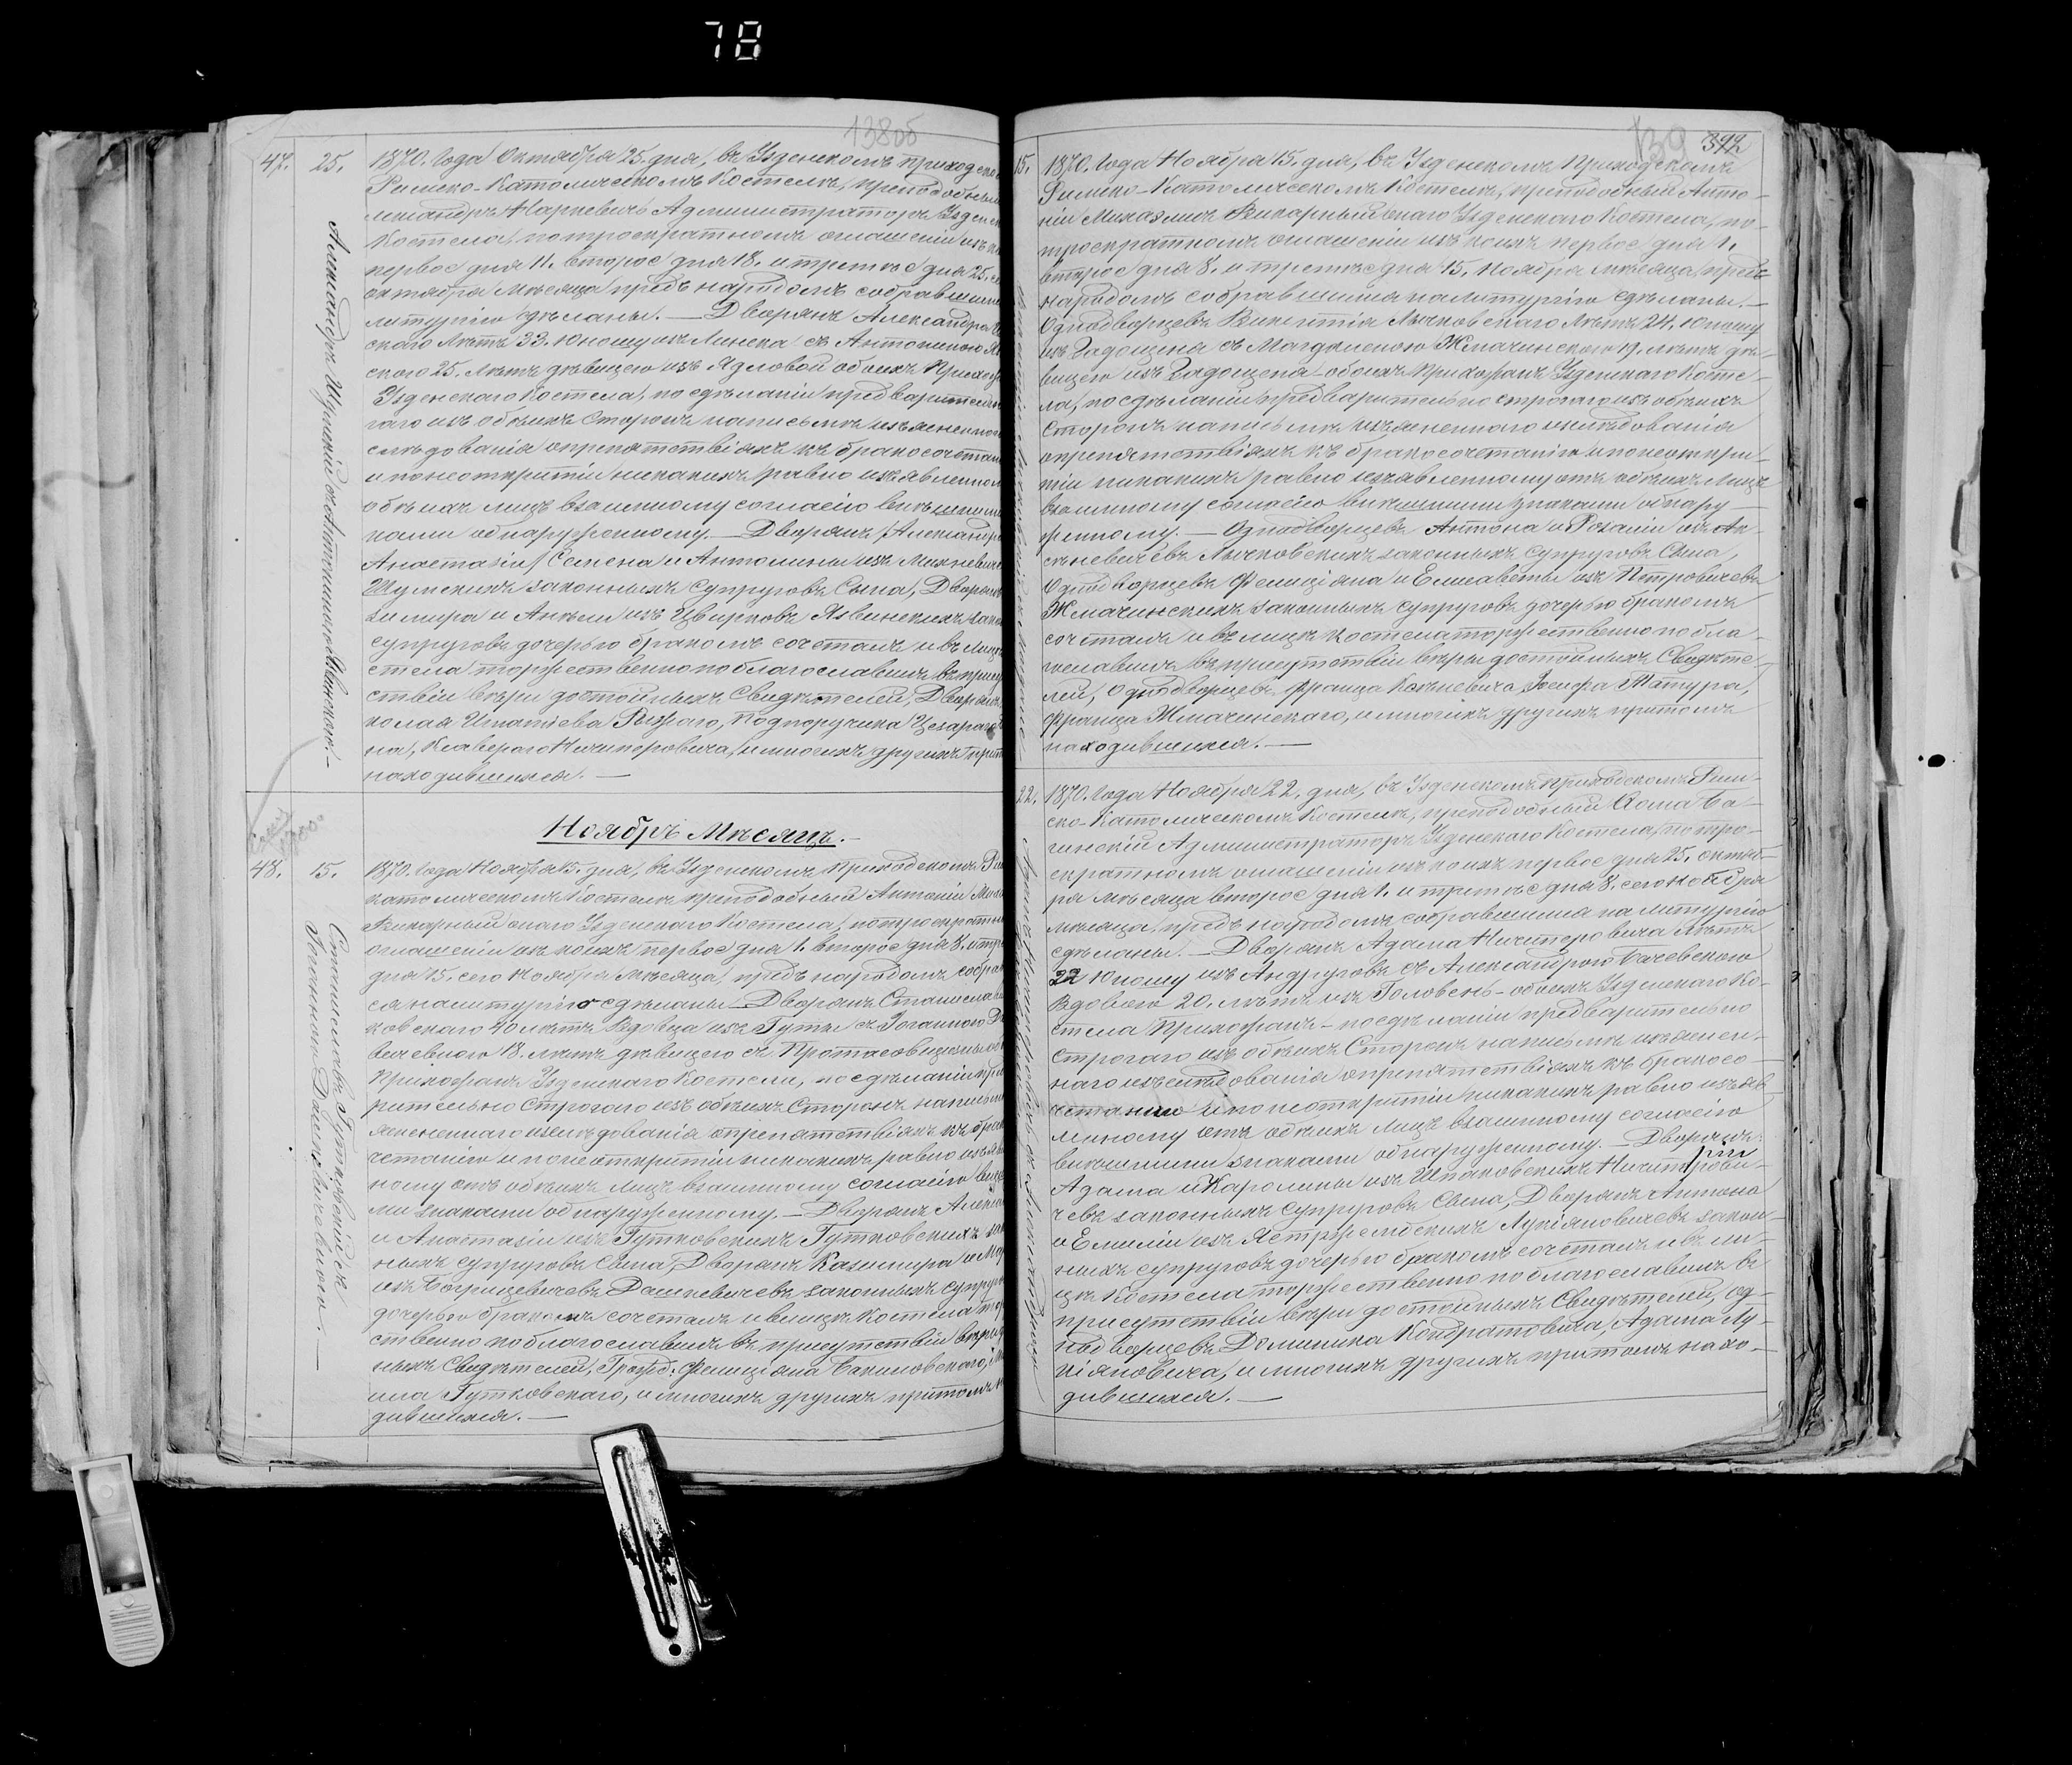 78
138об
47.
25.
Александръ Шумскій съ Антониною Явинскою. –
1870. Года Октября 25. дня, въ Узденскомъ Приходско
Римско-Католическомъ Костелѣ, преподобный
лександръ Наркевичъ Администраторъ Узденск
Костела, по троекратномъ оглашеніи изъ ко
первое дня 11. второе дня 18. и третье дня 25.
октября мѣсяца предъ народомъ собравшимся
литургію сдѣланы. — Дворянъ Александра
скаго лѣтъ 33. юношу изъ Линска съ Антониною Яв
скою 25. лѣтъ дѣвицею изъ Ядловой обоихъ Прихож
Узденскаго Костела, по сдѣланіи предварительн
гаго изъ обѣихъ Сторонъ написьмѣ изъясненнаго
слѣдованія о препятствіяхъ къ бракосочетан
и по неоткрытіи никакихъ равно изъявленном
обѣихъ лицъ взаимному согласію внѣшними
ками обнаруженному. — Дворянъ Александра
Анастазія Семена и Антонины изъ Михневич
Шумскихъ законныхъ супруговъ Сына, Дворянъ
зимира и Анели изъ Цвирковъ Явинскихъ закон
супруговъ дочерью бракомъ сочеталъ и въ лицѣ
стела торжественно поблагославилъ въ прису
ствіи вѣры достойныхъ Свидѣтелей, Дворянъ
колая Игнатіева Рызаго, Подпоручика Цезараго
на, Ксаверого Ничипоровича, и многихъ другихъ прит
находившихся. —
Ноябрь Мѣсяцъ. –
48.
15.
Станиславъ Гутковскій съ
Іоганною Дашкевичевною. —
1870. Года Ноября 15. дня, въ Узденскомъ Приходскомъ Рим
католическомъ Костелѣ преподобный Антоній Мик
Викарный онаго Узденскаго Костела, по троекратном
оглашеніи изъ коихъ первое дня 1. второе дня 8. и тре
дня 15. сего Ноября мѣсяца, предъ народомъ собрав
ся на литургію сдѣланы. — Дворянъ Станислава
ковскаго 40 лѣтъ Вдовца изъ Гуты съ Іоганною Да
вичевною 18. лѣтъ дѣвицею съ Протасовщизны
Прихожанъ Узденскаго Костела, по сдѣланіи пред
рительно строгаго изъ обѣихъ Сторонъ написьм
ясненнаго изслѣдованія о препятствіяхъ къ брак
четанію и по неоткрытіи никакихъ равно изъяв
ному отъ обѣихъ лицъ взаимному согласію внѣш
ми знаками обнаруженному. — Дворянъ Алекс
и Анастасіи изъ Гутковскихъ Гутковскихъ зак
ныхъ супруговъ Сына, Дворянъ Казимира и Мар
изъ Богушевичевъ Дашкевичевъ законныхъ супруго
дочерью бракомъ сочеталъ и въ лицѣ Костела тор
ственно поблагославилъ въ присутствіи вѣры д
ныхъ Свидѣтелей, Гражд: Фелиціяна Бакиновскаго,
ила Гутковскаго, и многихъ другихъ притомъ н
дившихся. —
139
392
15.
1870. Года Ноября 15. дня, въ Узденскомъ Приходскомъ
Римско-Католическомъ Костелѣ, преподобный Анто-
ній Михаэлисъ Викарный онаго Узденскаго Костела, по
троекратномъ оглашеніи изъ коихъ первое дня 1.
второе дня 8. и третье дня 15. Ноября мѣсяца, предъ
народомъ собравшимся на литургію сдѣланы. —
Однодворцевъ Викентія Лычковскаго лѣтъ 24. юношу
изъ Задощена съ Магдаленою Жмачинскою 19. лѣтъ дѣ-
вицею изъ Задощена – обоихъ Прихожанъ Узденскаго Косте-
ла, по сдѣланіи предварительно строгаго изъ обѣихъ
Сторонъ написьмѣ изъясненнаго изслѣдованія
о препятствіяхъ къ бракосочетанію и по неоткры-
тіи никакихъ равно изъявленному отъ обѣихъ Лицъ
взаимному согласію внѣшними знаками обнару-
женному. — Однодворцевъ Антона и Розаліи изъ
Лычковскихъ законныхъ супруговъ Сына,
Однодворцевъ Фелиціяна и Елисаветы изъ Петровичевъ
Жмачинскихъ законныхъ супруговъ дочерью бракомъ
сочеталъ и въ лицѣ Костела торжественно побла-
гославилъ въ присутствіи вѣры достойныхъ Свидѣте-
лей, Однодворцевъ Франца Іосифа Мятура,
Франца Жмачинскаго, и многихъ другихъ притомъ
находившихся. —
22.
1870. Года Ноября 22. дня, въ Узденскомъ Приходскомъ Рим-
ско-Католическомъ Костелѣ, преподобный Ѳома Ба-
гинскій Администраторъ Узденскаго Костела, по трое-
кратномъ оглашеніи изъ коихъ первое дня 25. октяб-
ря мѣсяца второе дня 1. и третье дня 8. сего ноября
мѣсяца, предъ народомъ собравшимся на литургію
сдѣланы. — Дворянъ Адама Ничипоровича лѣтъ
22 юношу изъ Андруговъ съ Александрою Бачевскою
Вдовою 20. лѣтъ изъ Головень – обоихъ Узденскаго Ко-
стела Прихожанъ – по сдѣланіи предварительно
строгаго изъ обѣихъ Сторонъ написьмѣ изъяснен-
наго изслѣдованія о препятствіяхъ къ бракосо-
четанію и по неоткрытіи никакихъ равно изъяв
ленному отъ обѣихъ лицъ взаимному согласію
внѣшними знаками обнаруженному. — Дворянъ
Адама и Каролины изъ Шпаковскихъ Ничипорови-
чевъ законныхъ супруговъ Сына, Дворянъ Антона
и Емиліи изъ Ястржембскихъ Лукіяновичевъ закон-
ныхъ супруговъ дочерью бракомъ сочеталъ и въ ли-
цѣ Костела торжественно поблагославилъ въ
присутствіи вѣры достойныхъ Свидѣтелей, од-
нодворцевъ Доминика Кондратовича, Адама Лу-
кіяновича, и многихъ другихъ притомъ нахо-
дившихся. —